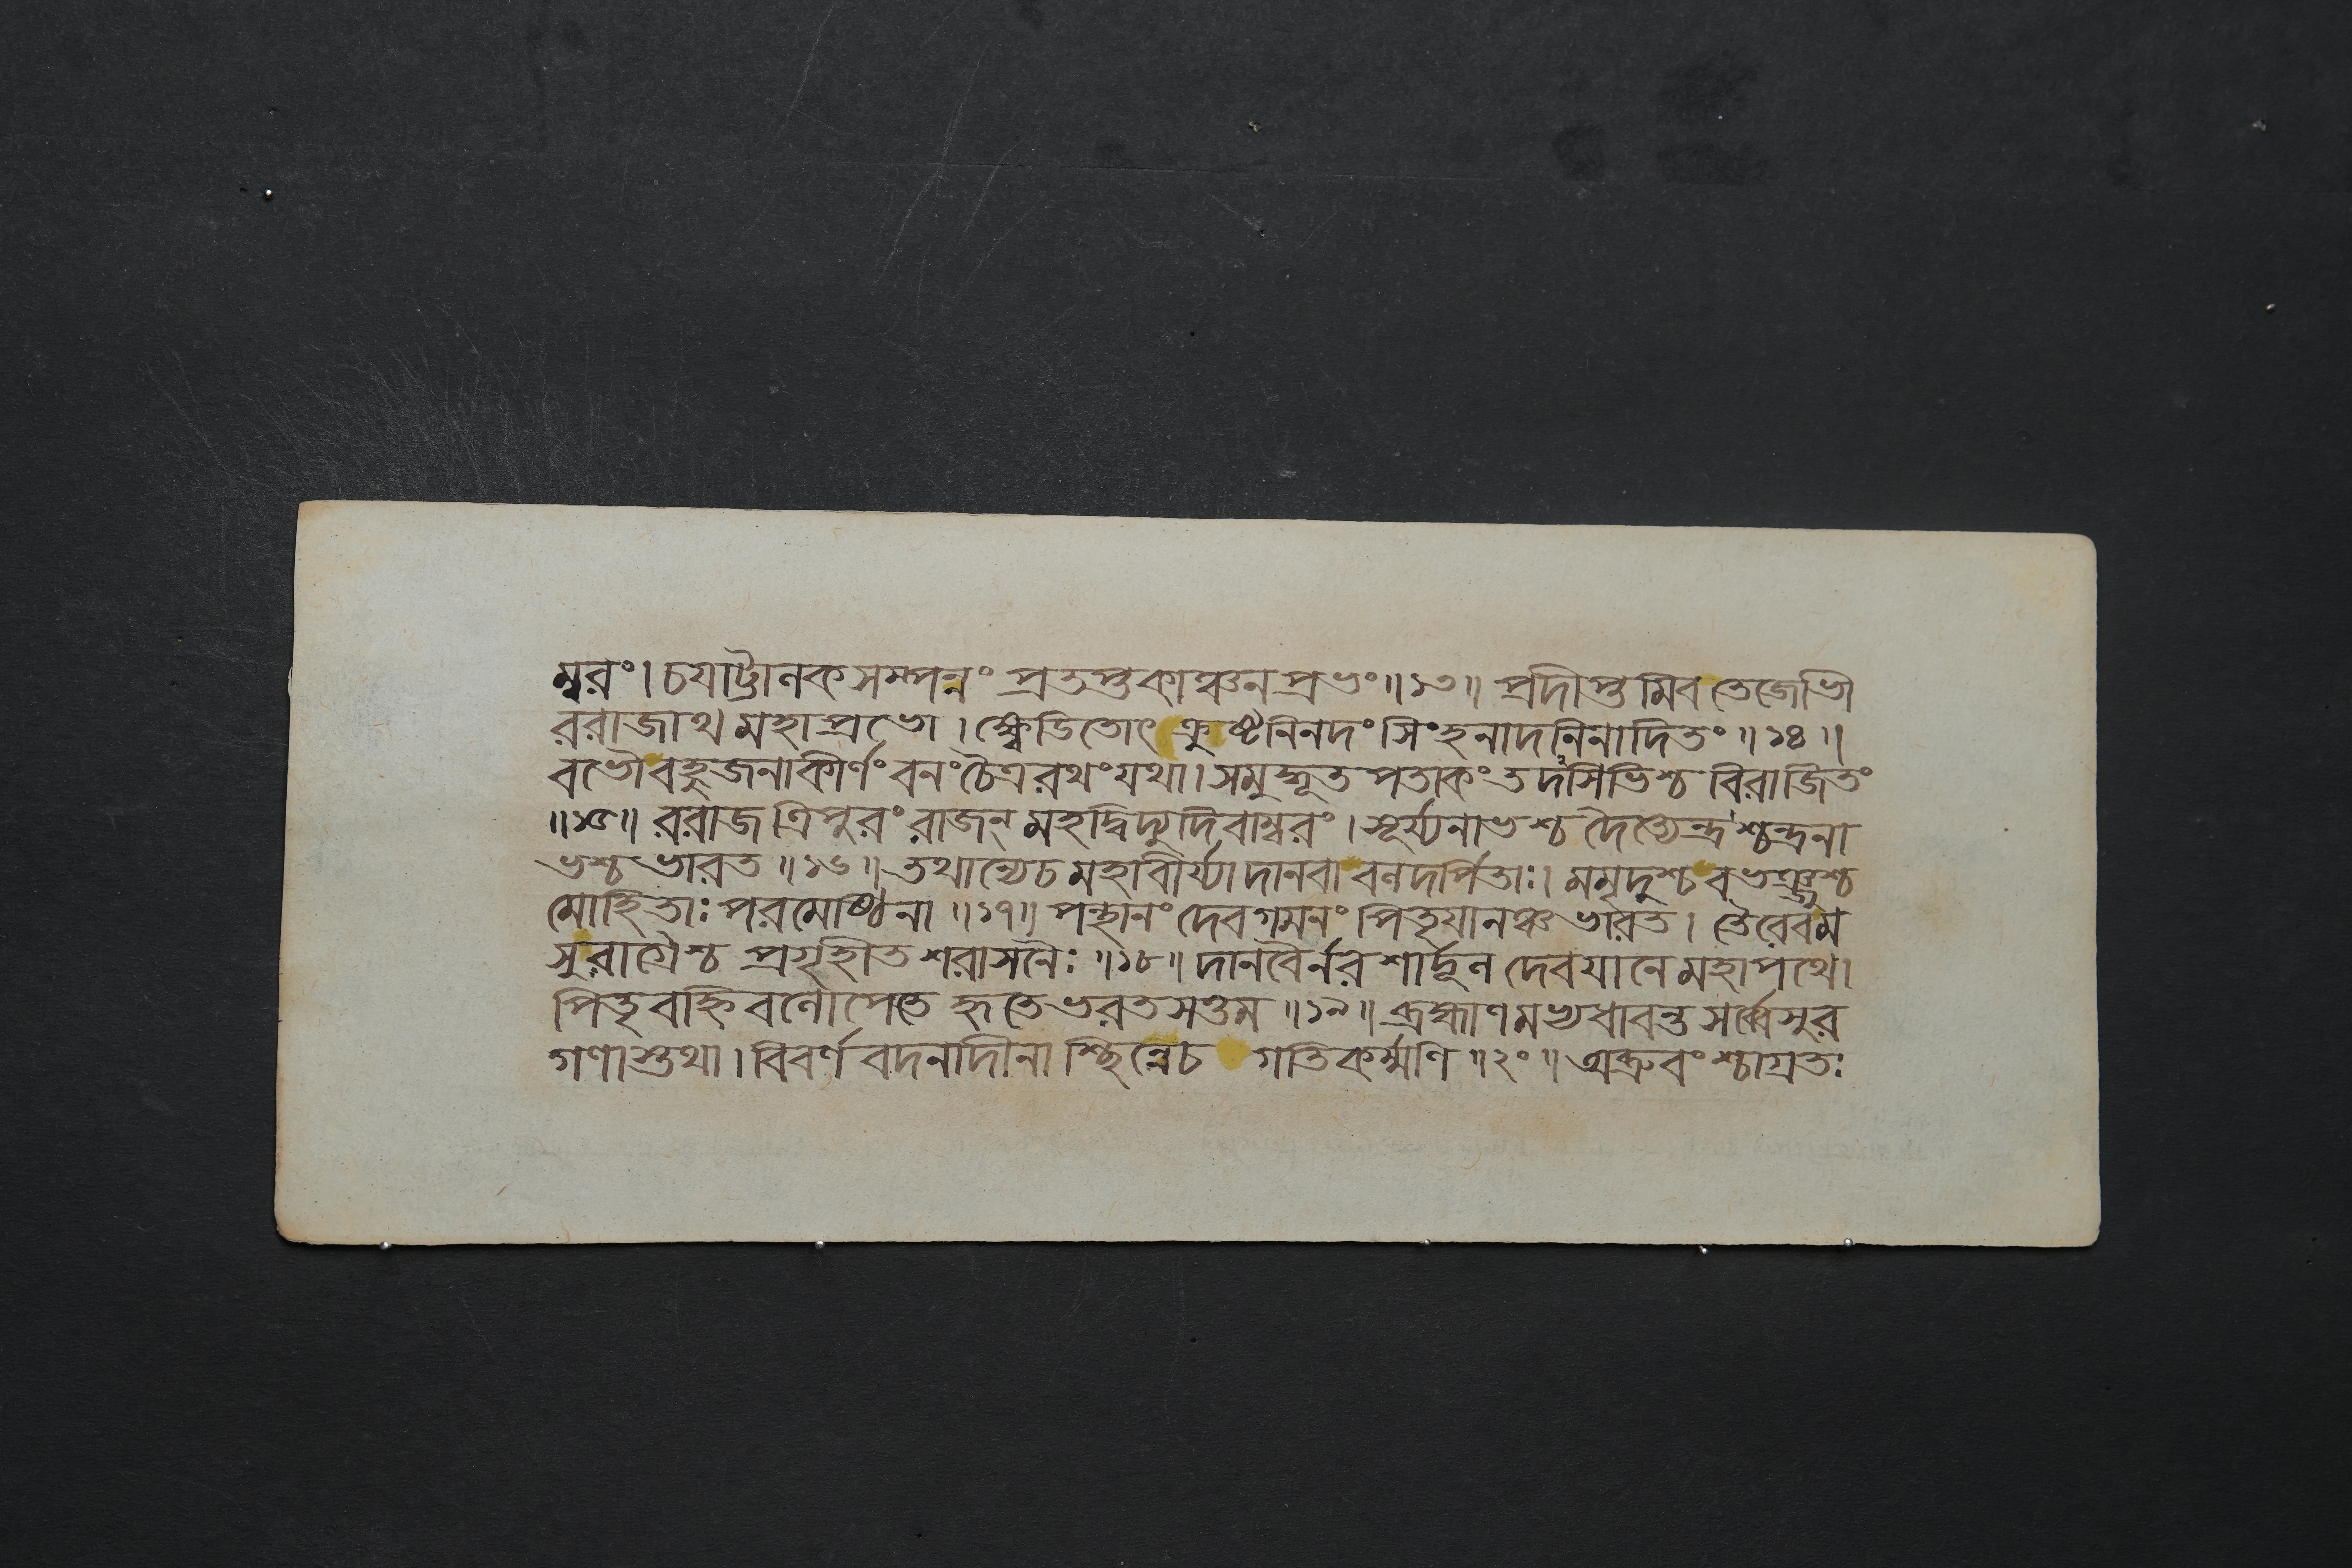 ম্বরং। চয়াট্টালকসম্পন্নং প্রতপ্তকাঞ্চনপ্রভং॥১৩॥ প্রদীপ্তমিব তেজোভী
ররাজাথ মহাপ্রভো। ক্ষ্বেডিতোৎক্রুষ্টনিনদং সিংহনাদনিনাদিতং॥১৪॥
বভৌ বহুজনাকীর্ণং বনং চৈত্ররথং যথা। সমুদ্ধূত পতাকং তদসিভিশ্চ বিরাজিতং
॥১৫॥ ররাজ ত্রিপুরং রাজন্ মহদ্বিদ্যুদিবাম্বরং। সূর্য্যনাভশ্চ দৈত্যেন্দ্রশ্চন্দ্রনা
ভশ্চ ভারত॥১৬॥ তথান্যেচ মহাবীর্য্যা দানবা বলদর্পিতাঃ। মমৃদুশ্চ বভঞ্জুশ্চ
মোহিতাঃ পরমেষ্ঠিনা॥১৭॥ পন্থানং দেবগমনং পিতৃযানঞ্চ ভারত। তৈরেবম
সুরাগ্রৈশ্চ প্রগৃহীতশরাসনৈঃ॥১৮॥ দানবৈর্নরশার্দ্দূল দেবযানে মহাপথে।
পিতৃবহ্নিবলোপেতে হৃতে ভরতসত্তম॥১৯॥ ব্রহ্মাণমভ্যধাবন্ত সর্ব্বেসুর
গণাস্তথা। বিবর্ণবদনাদীনা শ্ছিন্নেচ গতিকর্ম্মণি॥২০॥ অব্রুবংশ্চাগ্রতঃ